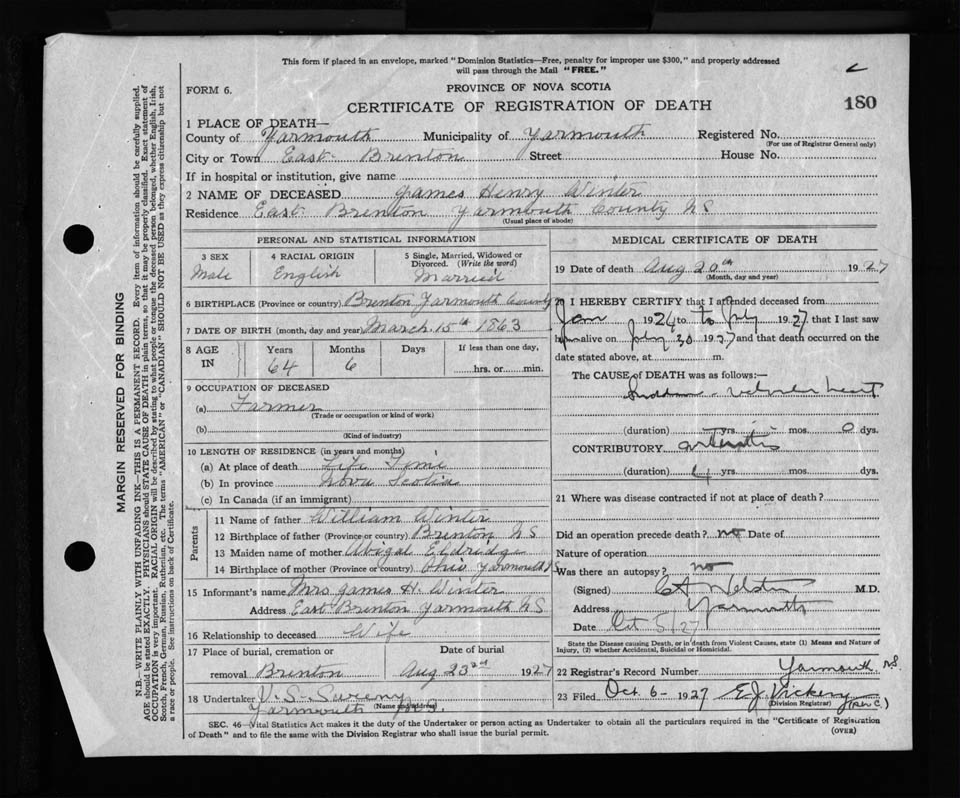 This form if placed in an envelope, marked "Dominion Statistics—Free, penalty for improper use $300," and properly addressed
will pass through the Mail "FREE."
FORM 6.
PROVINCE OF NOVA SCOTIA
CERTIFICATE OF REGISTRATION OF DEATH
180
1 PLACE OF DEATH—
County of Yarmouth Municipality of Yarmouth Registered No.
(For use of Registrar General only)
City or Town East Brenton Street House No.
If in hospital or institution, give name
2 NAME OF DECEASED James Henry Winter
Residence East Brenton Yarmouth County NS
(Usual place of abode)
PERSONAL AND STATISTICAL INFORMATION
3 SEX 4 RACIAL ORIGIN 5 Single, Married, Widowed or
Divorced. (Write the word)
Male English Married
6 BIRTHPLACE (Province or country) Brenton Yarmouth County
7 DATE OF BIRTH (month, day, and year) March 15th 1863
8 AGE IN Years Months Days If less than one day,
64 6 hrs. or min.
9 OCCUPATION OF DECEASED
(a) Farmer
(Trade or occupation or kind of work)
(b)
(Kind of industry)
10 LENGTH OF RESIDENCE (in years and months)
(a) At place of death Life Time
(b) In province Nova Scotia
(c) In Canada (if an immigrant)
Parents
11 Name of father William Winter
12 Birthplace of father (Province or country) Brenton NS
13 Maiden name of mother Abigal Eldridge
14 Birthplace of mother (Province or country) Ohio Yarmouth NS
15 Informant's name Mrs James H. Winter
Address East Brenton Yarmouth NS
16 Relationship to deceased Wife
17 Place of burial, cremation or Date of burial
removal Brenton Aug 23rd 1927
18 Undertaker V. S. Sweeny
(Name and address)
Yarmouth N.S.
MEDICAL CERTIFICATE OF DEATH
19 Date of death Aug 20th 1927
(Month, day and year)
20 I HEREBY CERTIFY that I attended deceased from
Jan 1924 to July 1927 that I last saw
h alive on July 30 1927 and that death occurred on
date stated above, at m.
The CAUSE of DEATH was as follows:—
Sudden - valvular heart
(duration) yrs. mos. 0 dys.
CONTRIBUTORY
(duration) 4 yrs. mos. dys.
21 Where was disease contracted if not at place of death?
Did an operation precede death? no Date of
Nature of operation
Was there an autopsy? no
(Signed) M.D.
Address Yarmouth
Date Oct 5/27
State the Disease causing Death, or in death from Violent Causes, state (1) Means and Nature of
Injury, (2) whether Accidental, Suicidal or Homicidal.
22 Registrar's Record Number Yarmouth NS.
23 Filed Oct. 6 1927 E.J. Vickery
(Division Registrar)
SEC. 46—Vital Statistics Act makes it the duty of the Undertaker or person acting as Undertaker to obtain all the particulars required in the "Certificate of Registration
of Death" and to file the same with the Division Registrar who shall issue the burial permit.
(OVER)
MARGIN RESERVED FOR BINDING
N.B.—WRITE PLAINLY WITH UNFADING INK—THIS IS A PERMANENT RECORD. Every item of information should be carefully supplied.
AGE should be stated EXACTLY. PHYSICIANS should STATE CAUSE OF DEATH in plain terms, so that it may be properly classified. Exact statement of
OCCUPATION is very important. RACIAL ORIGIN will be described by stating to what people or tongue the deceased person belonged, whether English, Irish,
Scotch, French, German, Russian, Ruthenian, etc. The terms "AMERICAN" or "CANADIAN" SHOULD NOT BE USED as they express citizenship but not
a race or people. See instructions on back of Certificate.